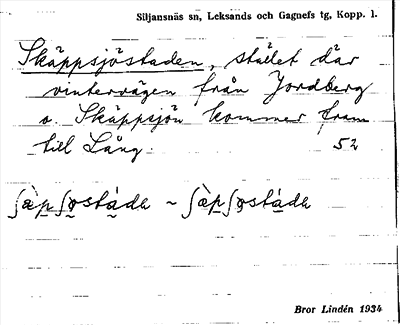 Siljansnäs sn, Leksands och Gagnefs tg, Kopp. l.
Skäppsjöstaden, stället där
vintervägen från Jordberg
o. Skäppsjön kommer fram
till Lång.
52
ʃæ̀pʃøstáda ~ ʃæ̀pʃøstáda
Bror Lindén 1934